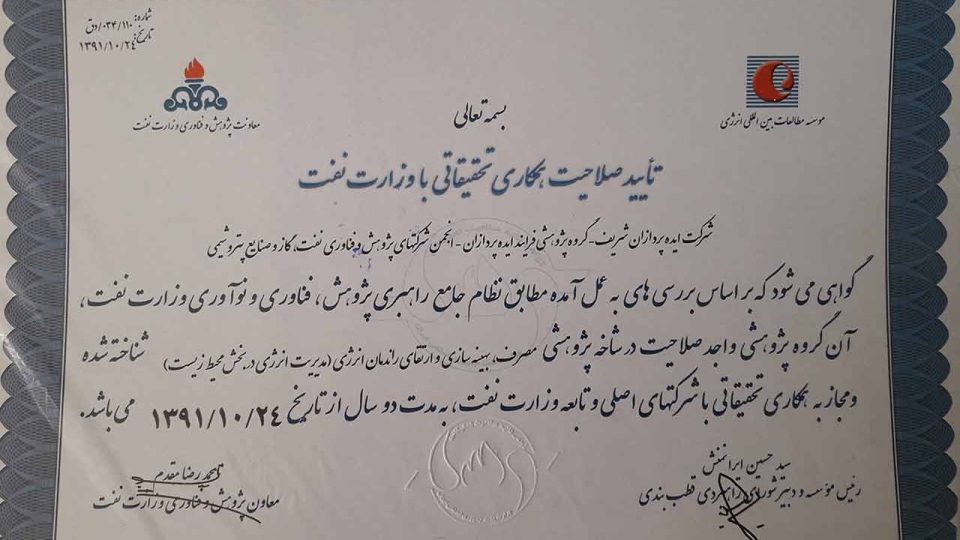 شماره: ۰۳۴/۱۱۰/دق
تاریخ: ۱۳۹۱/۱۰/۲۴
معاونت پژوهش و فناوری وزارت نفت
موسسه مطالعات بین المللی انرژی
بسمه تعالی
تأیید صلاحیت همکاری تحقیقاتی با وزارت نفت
شرکت ایده پردازان شریف - گروه پژوهشی فرایند ایده پردازان - انجمن شرکتهای پژوهش و فناوری نفت، گاز و صنایع پتروشیمی
گواهی می شود که بر اساس بررسی های به عمل آمده مطابق نظام جامع راهبری پژوهش، فناوری و نوآوری وزارت نفت،
آن گروه پژوهشی واجد صلاحیت در شاخه پژوهشی مصرف، بهینه سازی و ارتقای راندمان انرژی (مدیریت انرژی در بخش محیط زیست) شناخته شده
و مجاز به همکاری تحقیقاتی با شرکتهای اصلی و تابعه وزارت نفت، به مدت دو سال از تاریخ ۱۳۹۱/۱۰/۲۴ می باشد.
سید حسین ایرانمنش
رئیس مؤسسه و دبیر شورای راهبردی قطب بندی
محمد رضا مقدم
معاون پژوهش و فناوری وزارت نفت